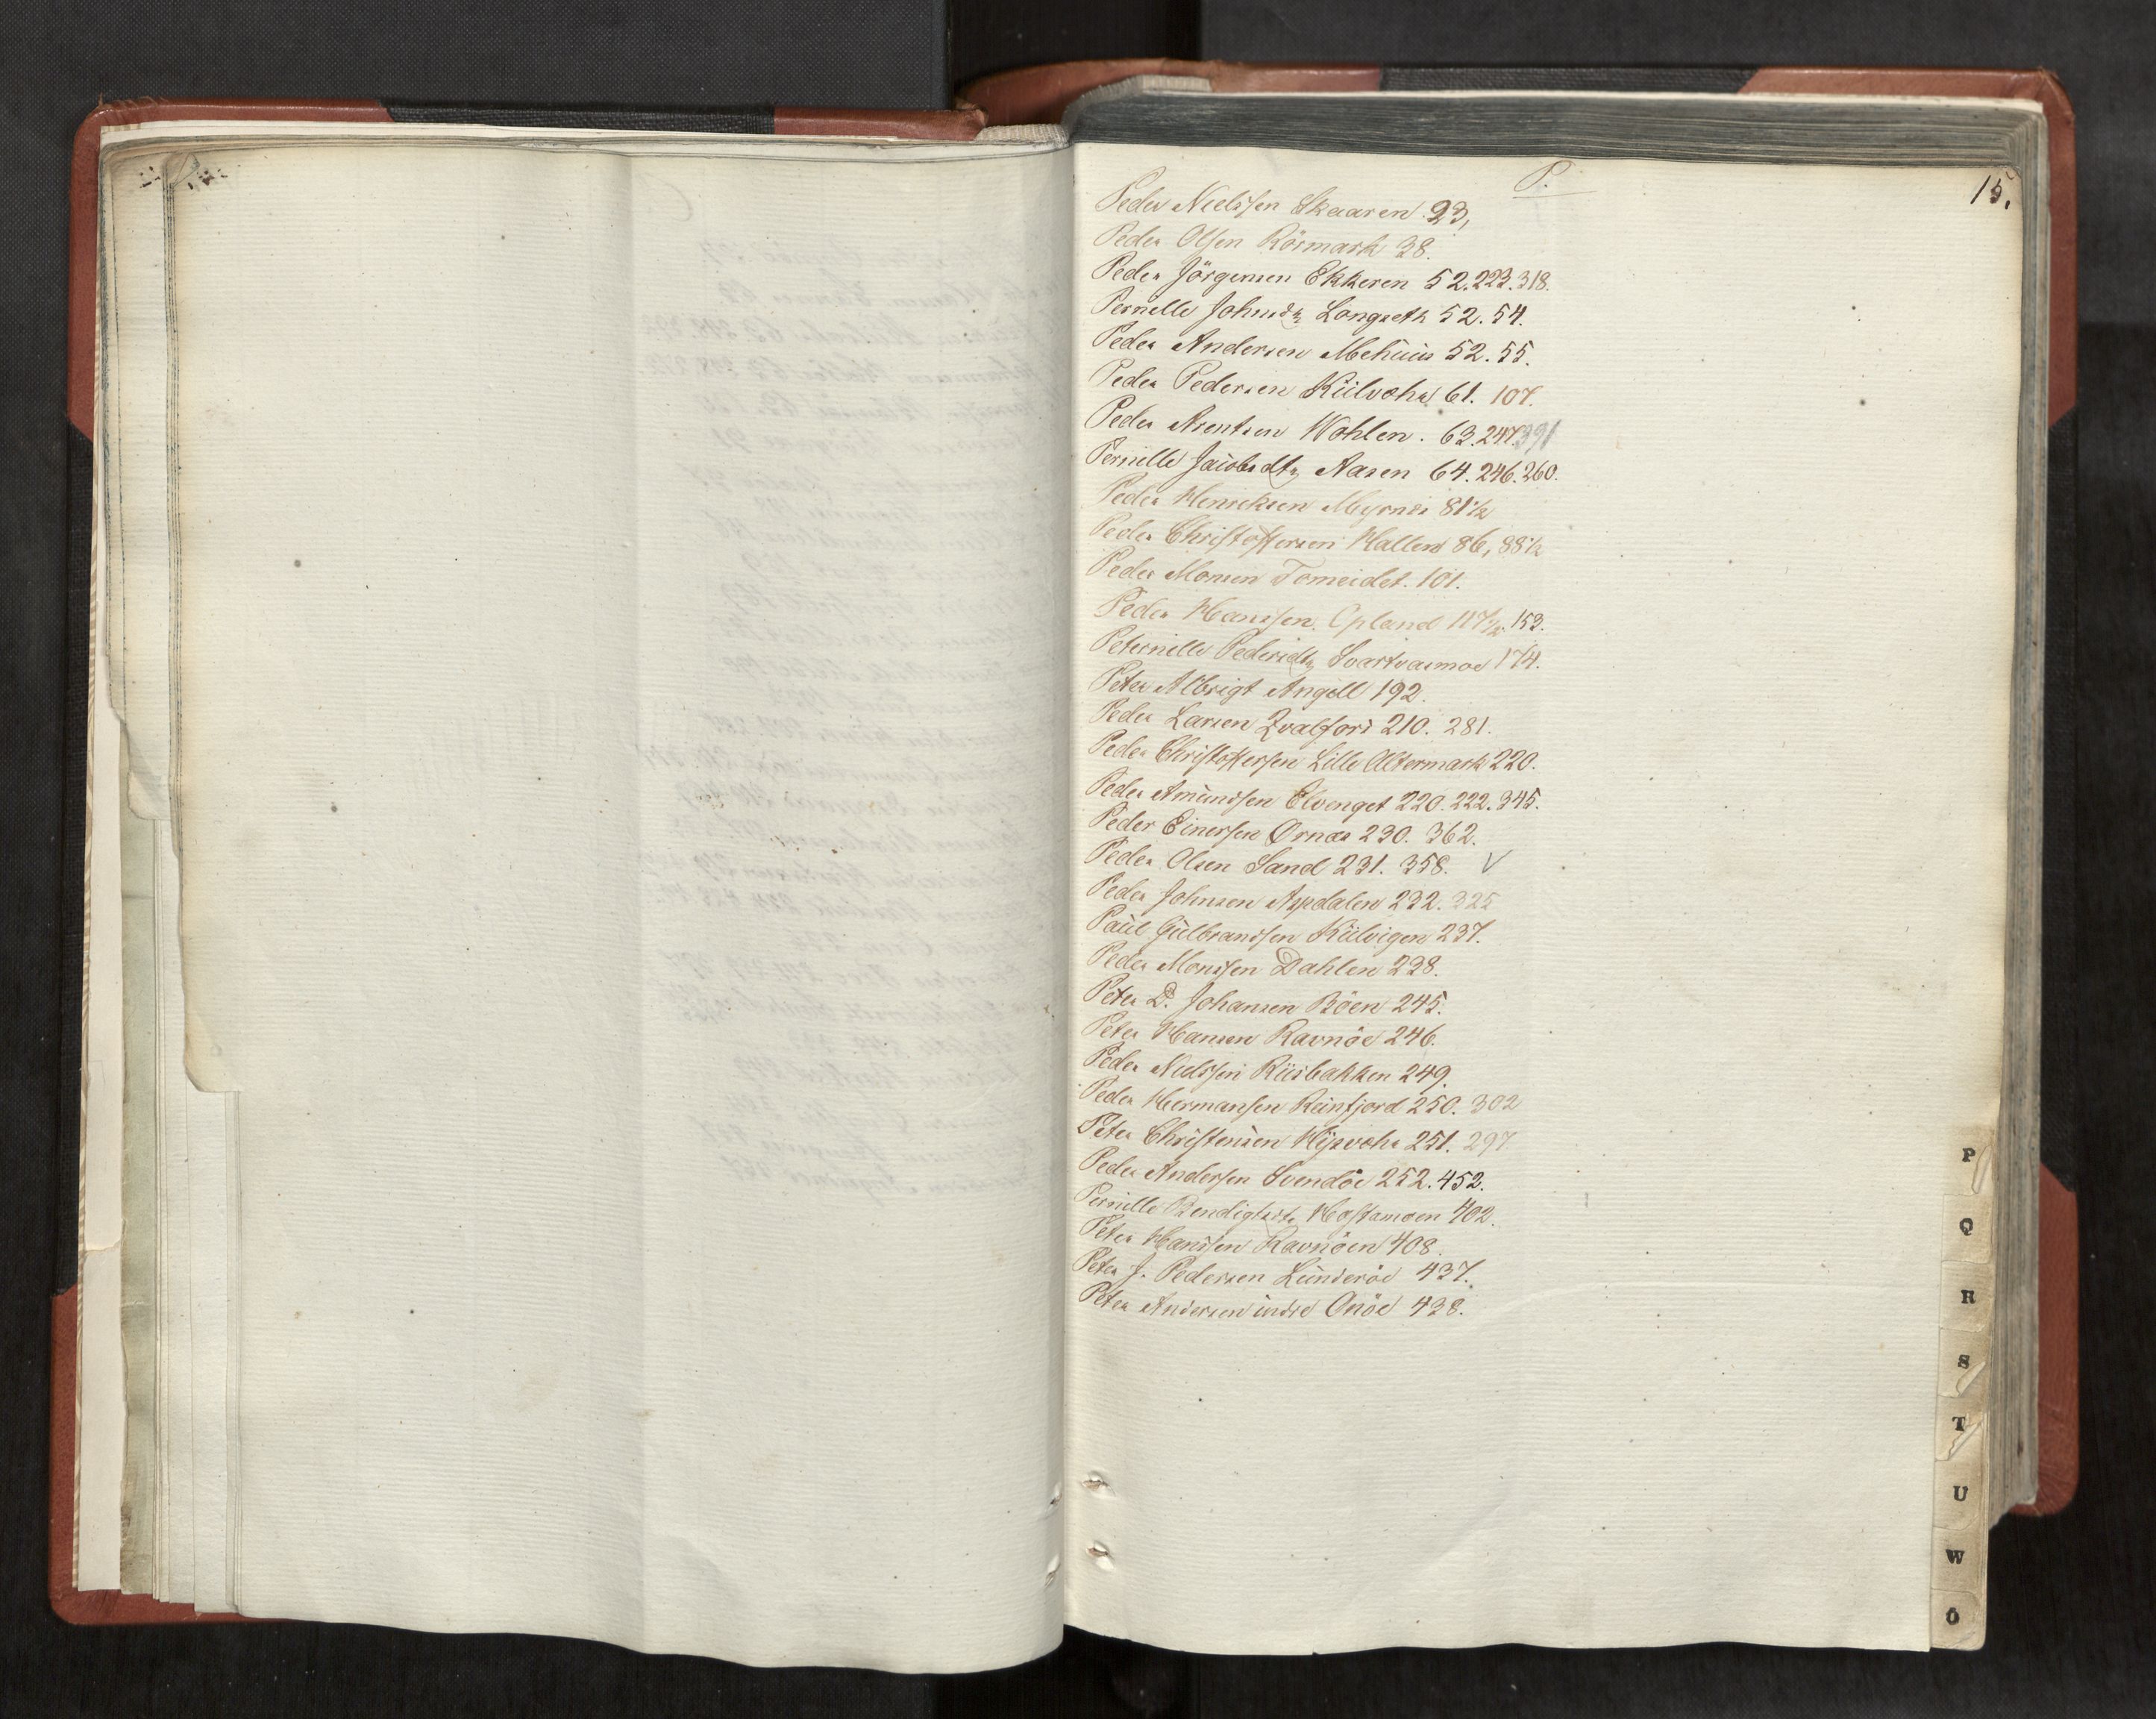 P.
15.
Peder Nielssen Skaaren. 23,
Peder Olsen Rösmark 38.
Peder Jörgensen Ekkeren 52.223.318.
Pernelle Johnsdtr Langseth 52.54.
Peder Andersen Mehuus 52.55.
Peder Pedersen Kiilvohn 61. 107.
Peder Arentsen Wohlen. 63.247.391
Pernille Jacobsdtr Aasen 64.246.260.
Peder Henriksen Myrnes 81½
Peder Christoffersen Hallen 86, 88½
Peder Monsen Tomeidet. 101.
Peder Hanssen. Opland 117½ 153.
Peternille Pedersdtr Svartvasmoe 174.
Peter Albrigt Angell 192.
Peder Larsen Qvalfors 210. 281.
Peder Christoffersen Lille Altermark 220.
Peder Amundsen Elvenget 220.222.345.
Peder Einersen Ørnæs 230. 362.
Peder Olsen Sand 231. 358. V
Peder Johnsen Aspdalen 232. 325
Paul Gulbrandsen Kiilvigen 237.
Peder Monssen Dahlen 238.
Peter D. Johansen Böen 245.
Peter Hansen Ravnöe 246.
Peder Nielssen Riisbakken 249.
Peder Hermansen Reinfjord 250. 302
Peter Christensen 251. 297
Peder Andersen Svendöe 252.452.
Pernille 402.
Peter Hanssen Ravnöen 408.
Peter J. Pedersen Lunderöe 437.
Peter Andersen indre Onöe 438.
P
Q
R
S
T
U
W
Ö